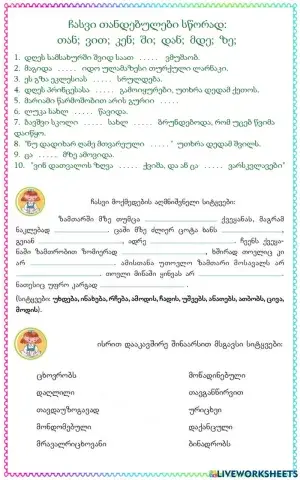 ჩასვი თანდებულები სწორად:
თან; ვით; კენ; ში; დან; მდე; ზე;
1. დღეს სამსახურში შვიდ საათ ..... ვმუშაობ.
2. მაგიდა ..... იდო ულამაზესი თურქული ლარნაკი.
3. ეს გზა ეკლესიას ..... სრულდება.
4. დღეს პრინცესასა ..... გამოიყურები, უთხრა დედამ ქეთოს.
5. მარიამი წარმოშობით არის გურიი .....
6. ლუკა სახლ ..... წავიდა.
7. ბავშვი სკოლი ..... სახლ ..... ბრუნდებოდა, რომ უცებ წვიმა
დაიწყო.
8. "ნუ დადიხარ ღამე მთვარეული ....." უთხრა დედამ შვილს.
9. ცა ..... მზე ამოვიდა.
10. "ვინ დათვალოს ზღვა ..... ქვიშა, და ან ცა ..... ვარსკვლავები"
ჩასვი მოქმედების აღმნიშვნელი სიტყვები:
ზამთარში მზე თუმცა ქვეყანას, მაგრამ
ნაკლებად . ცაში მზე ძლიერ ცოტა ხანს ,
გვიან , ადრე . ჩვენს ქვეყა-
ნაში ზამთრობით ზომიერად , ხშირად თოვლიც კი
არ . ამისთანა უთოვლო ზამთარი მოსავალს არ
. თოვლი მინაში ყინვას არ
ნათესიც უფრო კარგად .
(სიტყვები: უხდება, ინახება, რჩება, ამოდის, ჩადის, უშვებს, ანათებს, ათბობს, ცივა,
მოდის).
ისრით დააკავშირე შინაარსით მსგავსი სიტყვები:
ცხოვრობს მონადინებული
დაღლილი თავგანწირვით
თავდაუზოგავად ურიცხვი
მონდომებული დაქანცული
მრავალრიცხოვანი ბინადრობს
LIVEWORKSHEETS